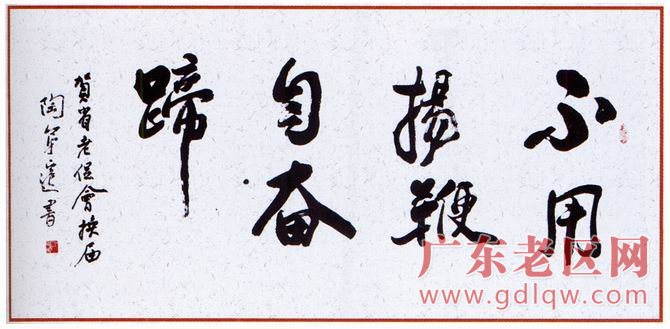 不用
揚鞭
自奋
蹄
賀省老促會换届
陶 書
广东老区网
www.gdlqw.com